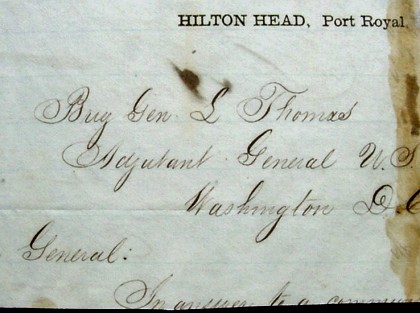 HILTON HEAD, Port Royal,
Brig Gen. L Thomas
Adjutant General U.S.
Washington D.C
General:
In answer to a commun